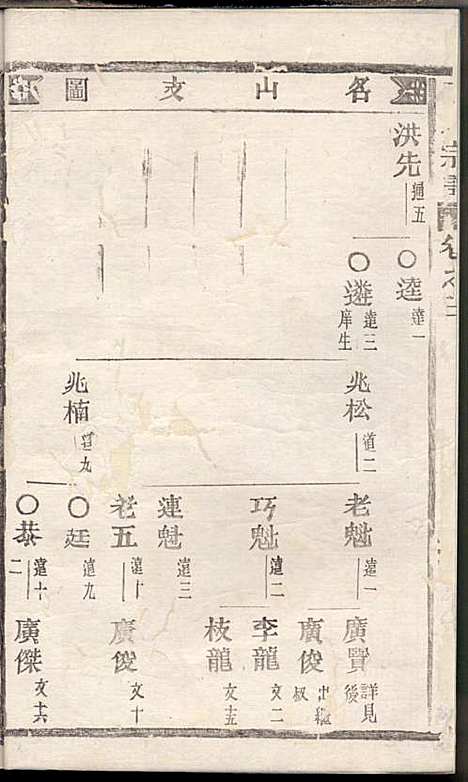 名山支圖
洪先 通五
○達 達一
○遴 達三 庠生
兆松 道二
兆楠 道九
老魁 遠一
巧魁 遠二
連魁 遠三
老五 遠十
○廷 遠九
○恭 遠十二
廣賢 詳見後
廣俊 出繼叔
李龍 文二
枝龍 文十五
廣俊 文十
廣傑 文十六